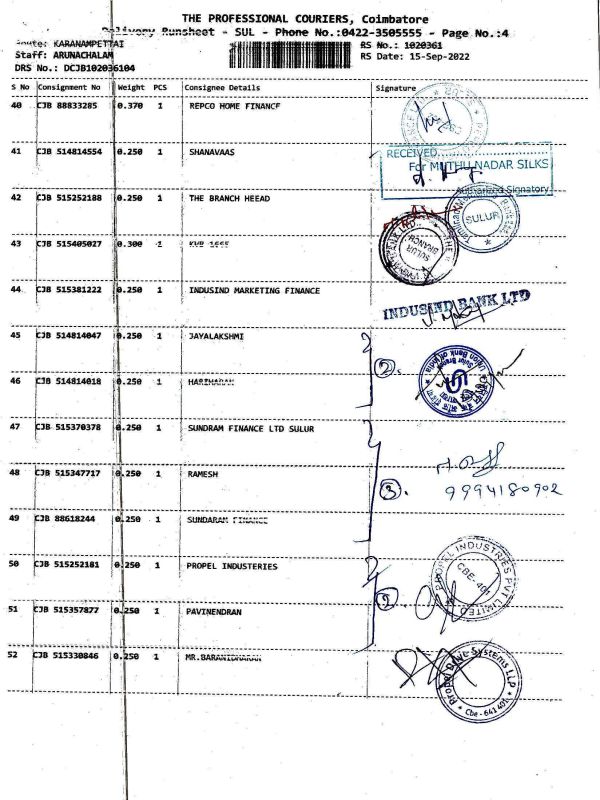 THE PROFESSIONAL COURIERS, Coimbatore
Delivery Runsheet - SUL - Phone No.:0422-3505555 - Page No.:4
Route: KARANAMPETTAI
RS No.: 1020361
Staff: ARUNACHALAM
RS Date: 15-Sep-2022
DRS No.: DCJB102036104
S No Consignment No Weight PCS Consignee Details Signature
40 CJB 88833285 0.370 1 REPCO HOME FINANCE
41 CJB 514814554 0.250 1 SHANAVAAS
RECEIVED
For MUTHU NADAR SILKS
Authorized Signatory
42 CJB 515252188 0.250 1 THE BRANCH HEEAD
SULUR
43 CJB 515405027 0.300 1 KVB 1665
SULUR BRANCH
44 CJB 515381222 0.250 1 INDUSIND MARKETING FINANCE
INDUSIND BANK LTD
45 CJB 514814047 0.250 1 JAYALAKSHMI
2.
Union Bank of India
Sulur Branch
46 CJB 514814018 0.250 1 HARIHARAN
47 CJB 515370378 0.250 1 SUNDRAM FINANCE LTD SULUR
48 CJB 515347717 0.250 1 RAMESH
3.
9994180902
49 CJB 88618244 0.250 1 SUNDARAM FINANCE
50 CJB 515252181 0.250 1 PROPEL INDUSTERIES
PROPEL INDUSTRIES PVT LIMITED
CBE-401
51 CJB 515357877 0.250 1 PAVINENDRAN
52 CJB 515330846 0.250 1 MR.BARANIDHARAN
Propel Drive Systems LLP
Cbe - 641 401